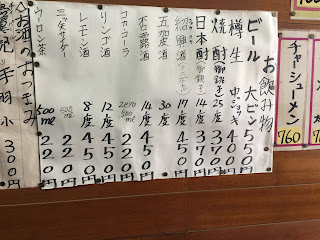 チャーシューメン 760
お飲み物
ビール 大ビン 550円
樽生 中ジョッキ 450円
焼酎 25度 370円
日本酎(御銚子) 14度 370円
紹興酒 17度 450円
五加皮酒 30度 400円
杏露酒 14度 450円
コカコーラ zero 500ml 220円
リンゴ酒 12度 450円
レモン酒 8度 450円
三ツ矢サイダー 500ml 220円
ウーロン茶 500ml 220円
お酒のおつまみ
手羽小 300円